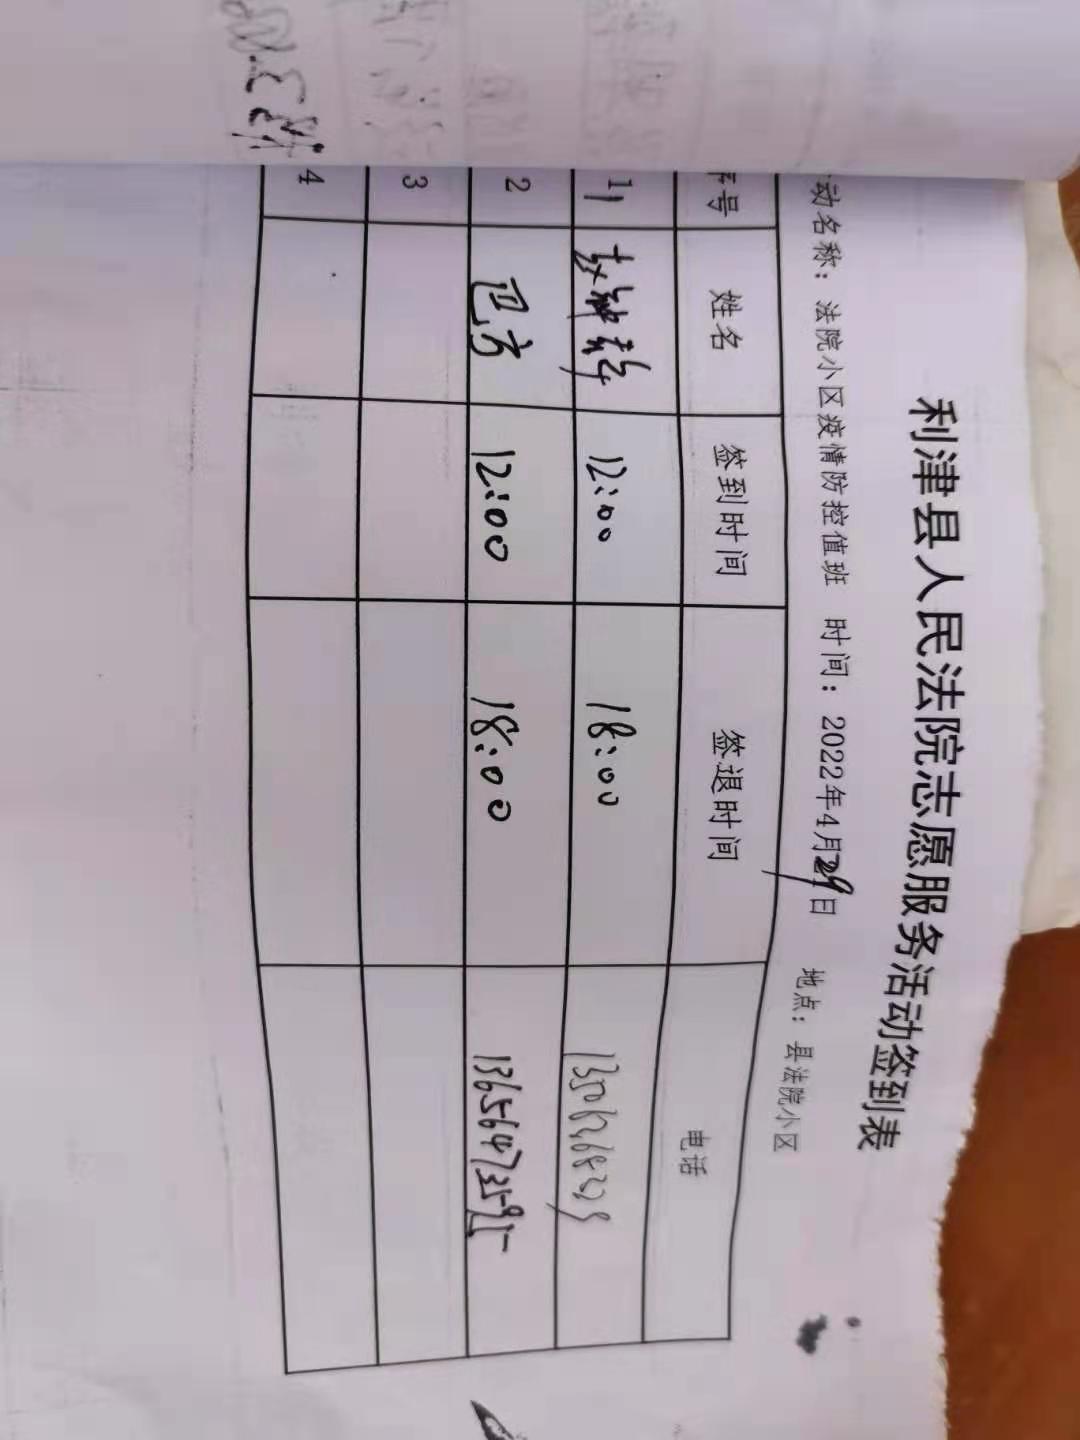 利津县人民法院志愿服务活动签到表
动名称：法院小区疫情防控值班 时间：2022年4月29日 地点：县法院小区
序号 姓名 签到时间 签退时间 电话
1 12:00 18:00
2 巴方 12:00 18:00 13656473595
3
4